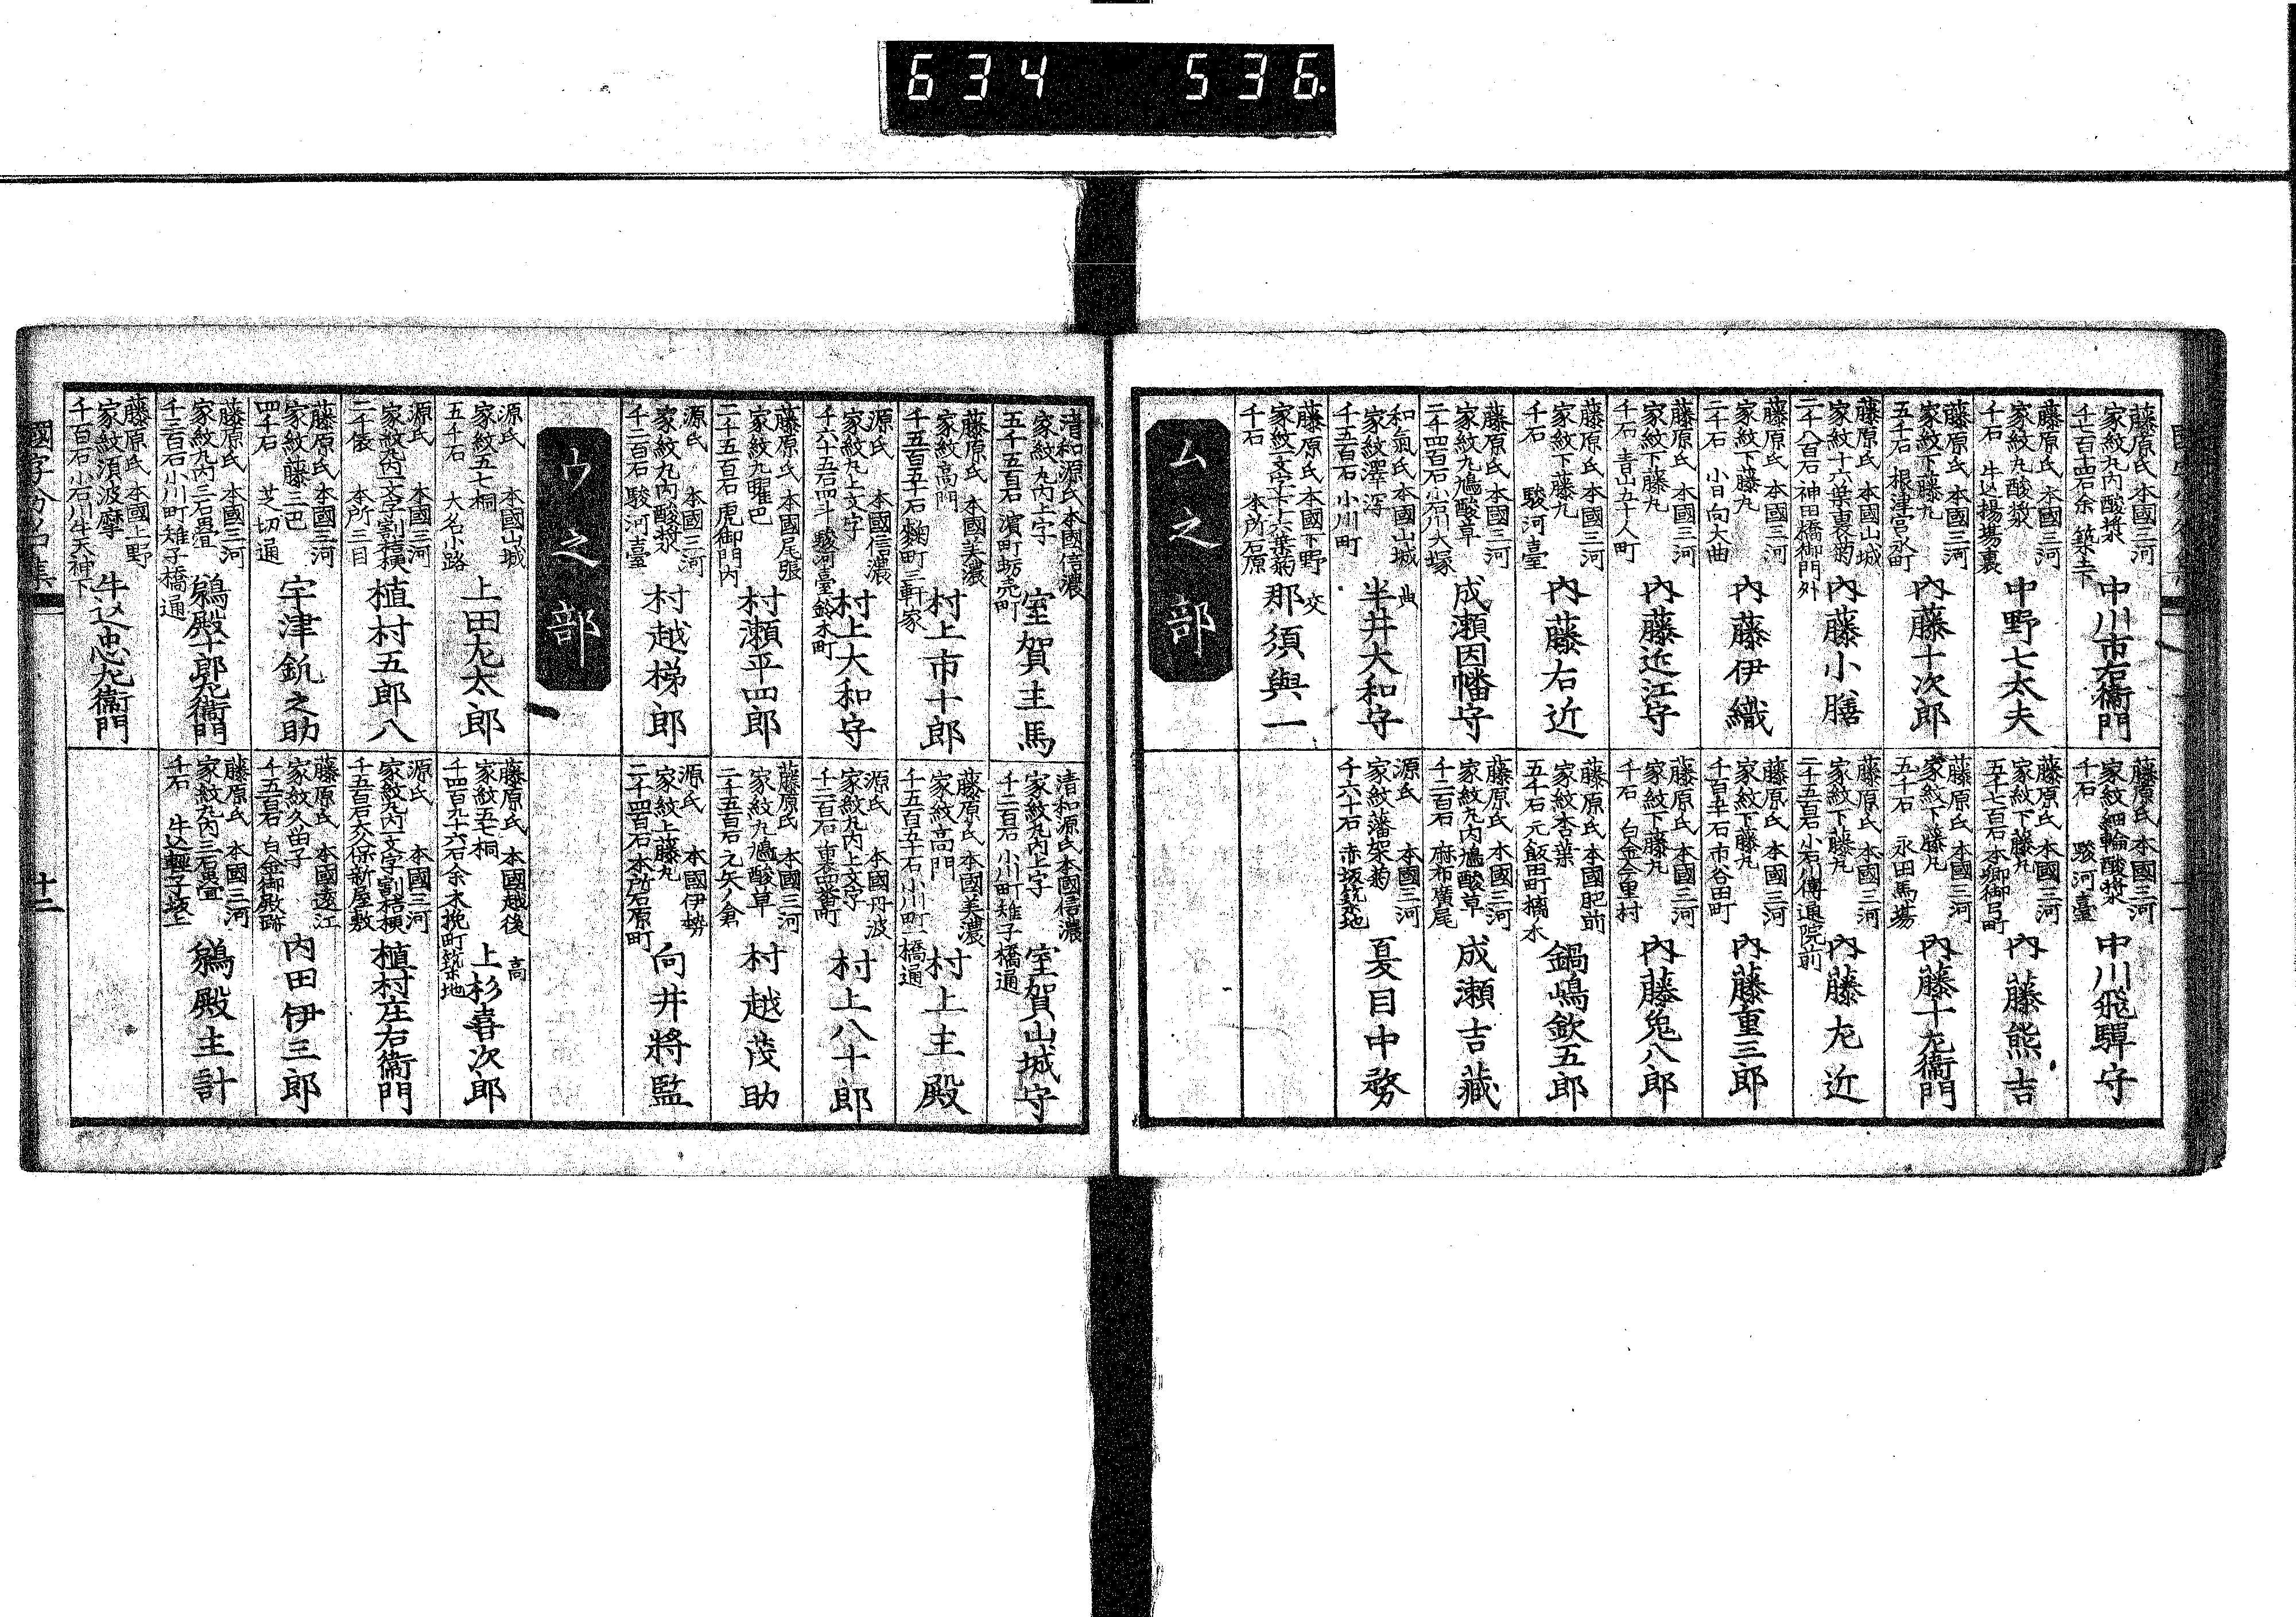 634 536.
藤原氏 本國三河
家紋丸内酸漿
中川市右衞門
藤原氏 本國三河
家紋丸酸漿
千石 牛込揚場裏
中野七太夫
藤原氏 本國三河
家紋下藤丸
五千石 根津宮永町
内藤十次郎
藤原氏 本國山城
家紋十六葉裏菊
二千八百石 神田橋御門外
内藤小膳
藤原氏 本國三河
家紋下藤丸
二千石 小日向大曲
内藤伊織
藤原氏 本國三河
家紋下藤丸
千石 青山五十人町
内藤近江守
藤原氏 本國三河
家紋下藤丸
千石 駿河臺
内藤右近
藤原氏 本國三河
家紋丸鳩酸草
二千四百石 小石川大塚
成瀬因幡守
和氣氏 本國山城
家紋澤瀉
千五百石 小川町
典
半井大和守
藤原氏 本國下野
家紋一文字十六葉菊
千石 本所石原
交
那須與一
藤原氏 本國三河
家紋細輪酸漿
千石 駿河臺
中川飛騨守
藤原氏 本國三河
家紋下藤丸
五千七百石 本郷御弓町
内藤熊吉
藤原氏 本國三河
家紋下藤丸
五千石 永田馬場
内藤十左衞門
藤原氏 本國三河
家紋下藤丸
二千五百石 小石川傳通院前
内藤左近
藤原氏 本國三河
家紋下藤丸
市谷田町
内藤重三郎
藤原氏 本國三河
家紋下藤丸
千石 白金今里村
内藤兔八郎
藤原氏 本國肥前
家紋杏葉
五千石 元飯田町堀水
鍋嶋欽五郎
藤原氏 本國三河
家紋丸内鳩酸草
千二百石 麻布廣尾
成瀬吉藏
源氏 本國三河
家紋藩架菊
千六十石 赤坂築地
夏目中務
ム之部
清和源氏 本國信濃
家紋丸内上字
五千五百石 濱町蛎売町
室賀主馬
藤原氏 本國美濃
家紋高門
千五百五十石 麹町三軒家
村上市十郎
源氏 本國信濃
家紋丸上文字
千六十五石四斗 駿河臺鈴木町
村上大和守
藤原氏 本國尾張
家紋九曜巴
二千五百石 虎御門内
村瀬平四郎
源氏 本國三河
家紋丸内酸漿
千二百石 駿河臺
村越梯郎
清和源氏 本國信濃
家紋丸内上字
千二百石 小川町雉子橋通
室賀山城守
藤原氏 本國美濃
家紋高門
千五百五十石 小川町一橋通
村上主殿
源氏 本國丹波
家紋丸内上文字
千二百石 裏四番町
村上八十郎
藤原氏 本國三河
家紋丸鳩酸草
二千五百石 元矢ノ倉
村越茂助
源氏 本國伊勢
家紋上藤丸
二千四百石 本所石原町
向井將監
ウ之部
源氏 本國山城
家紋五七桐
五千石 大名小路
上田左太郎
源氏 本國三河
家紋丸内一文字割桔梗
二千俵 本所三目
植村五郎八
藤原氏 本國三河
家紋藤三巴
四千石 芝切通
宇津釩之助
藤原氏 本國三河
家紋丸内三石畳
千三百石 小川町雉子橋通
鵜殿十郎左衞門
藤原氏 本國上野
家紋須波摩
千百石 小石川牛天神下
牛込忠左衞門
藤原氏 本國越後
家紋五七桐
千四百九十六石余 木挽町築地
高
上杉喜次郎
源氏 本國三河
家紋丸内一文字割桔梗
千五百石 大久保新屋敷
植村庄右衞門
藤原氏 本國遠江
家紋久留子
千五百石 白金御殿跡
内田伊三郎
藤原氏 本國三河
家紋丸内三石畳
千石 牛込輕子坂上
鵜殿主計
國字分名集
十二